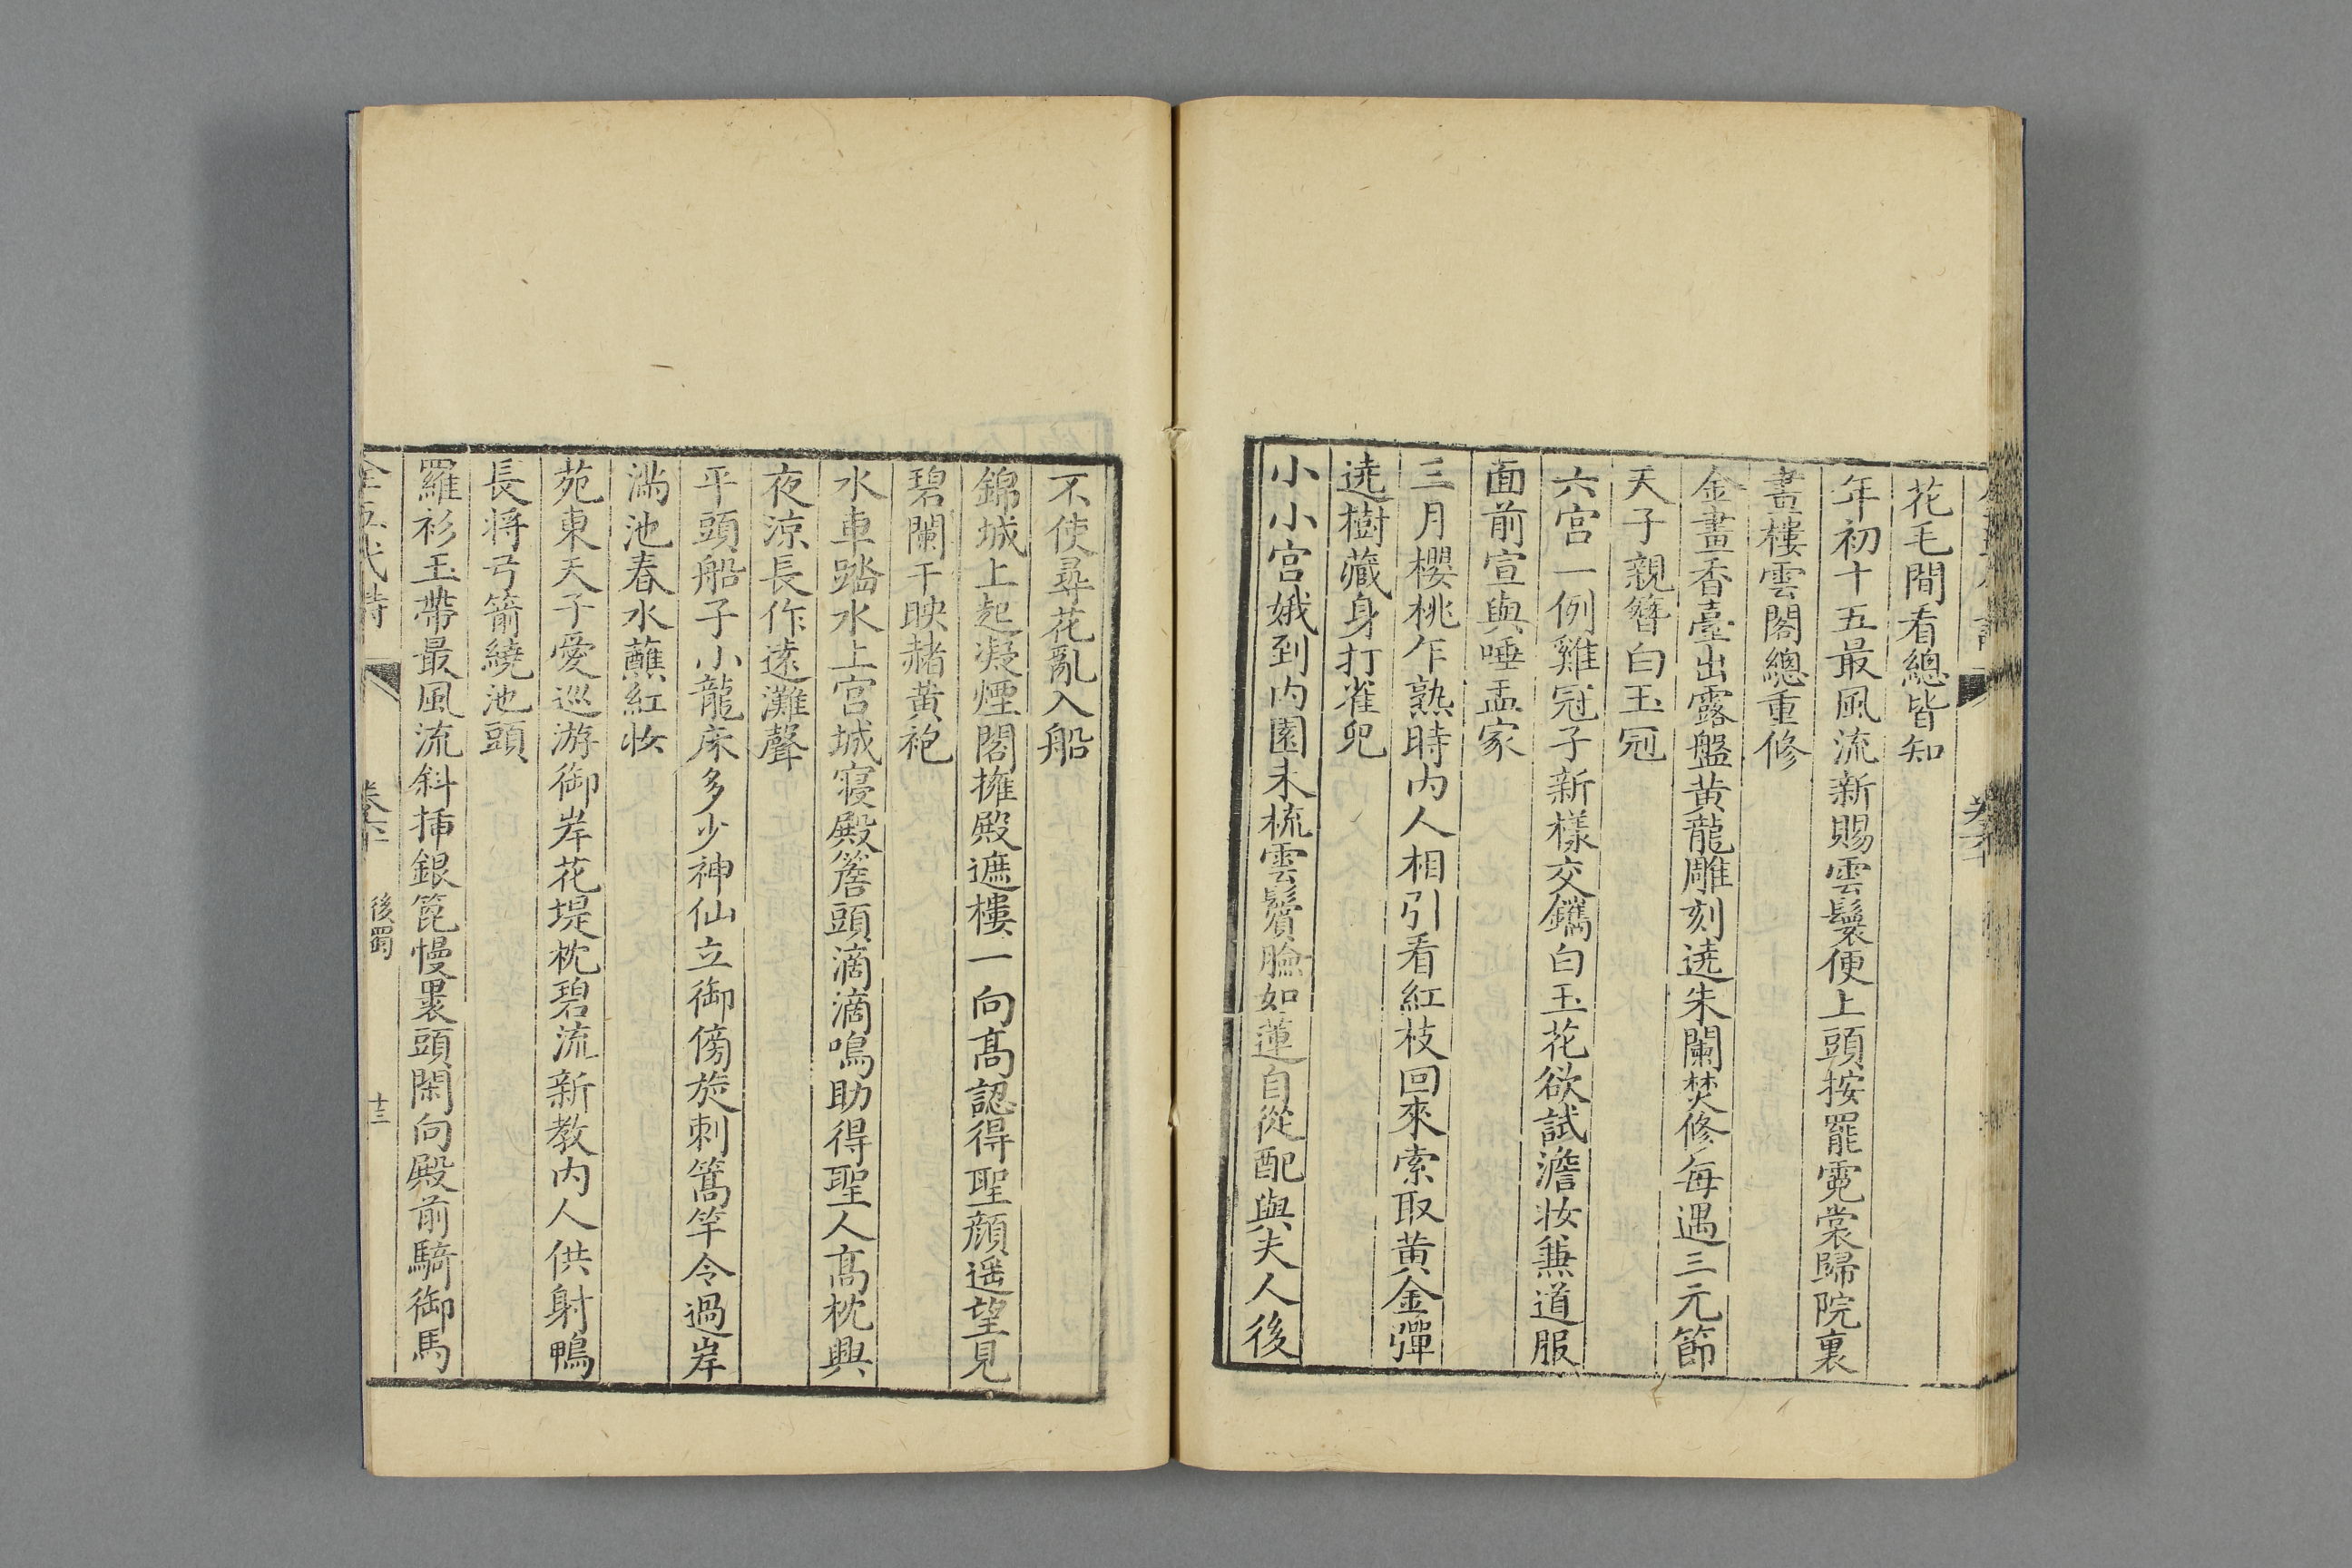 花毛間看總皆知
年初十五最風流新賜雲鬟便上頭按罷霓裳歸院裏
畫樓雲閣總重修
金畫香臺出露盤黃龍雕刻遶朱闌焚修每遇三元節
天子親簪白玉冠
六宮一例雞冠子新樣交鐫白玉花欲試澹妝兼道服
面前宣與唾盂家
三月櫻桃乍熟時內人相引看紅枝回來索取黃金彈
遶樹藏身打雀兒
小小宮娥到內園未梳雲鬢臉如蓮自從配與夫人後
不使尋花亂入船
錦城上起凝煙閣擁殿遮樓一向高認得聖顏遥望見
碧闌干映赭黃袍
水車踏水上宮城寢殿簷頭滴滴鳴助得聖人高枕興
夜涼長作遠灘聲
平頭船子小龍床多少神仙立御傍旋刺篙竿令過岸
滿池春水蘸紅妝
苑東天子愛巡游御岸花堤枕碧流新教內人供射鴨
長將弓箭繞池頭
羅衫玉帶最風流斜插銀篦慢裹頭閑向殿前騎御馬
後蜀
十三